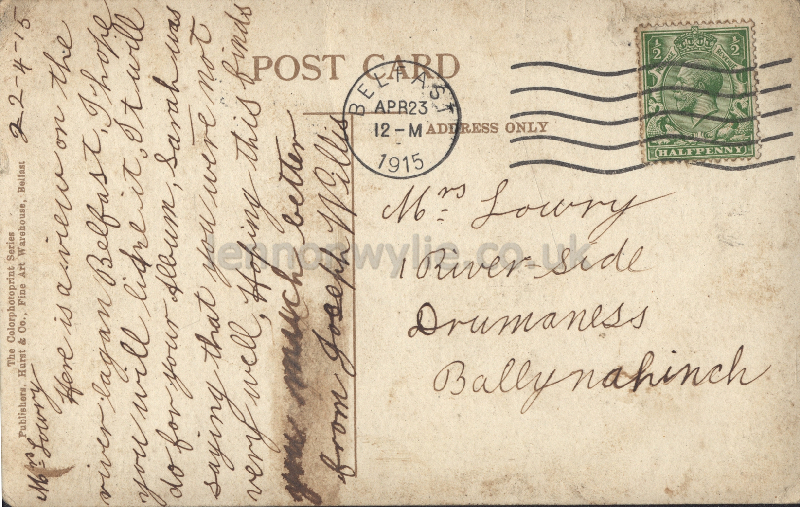 22-4-15
Mrs Lowry
Here is a view on the
river lagan Belfast, I hope
you will like it, It will
do for your Album, Sarah was
saying that you were not
very well, Hoping this finds
you much better
from Joseph Willis
The Colorphotoprint Series
Publishers, Hurst & Co., Fine Art Warehouse, Belfast
POST CARD
ADDRESS ONLY
BELFAST
APR 23
12-M
1915
½ ½
HALFPENNY
Mrs Lowry
1 River-side
Drumaness
Ballynahinch
lennonwylie.co.uk